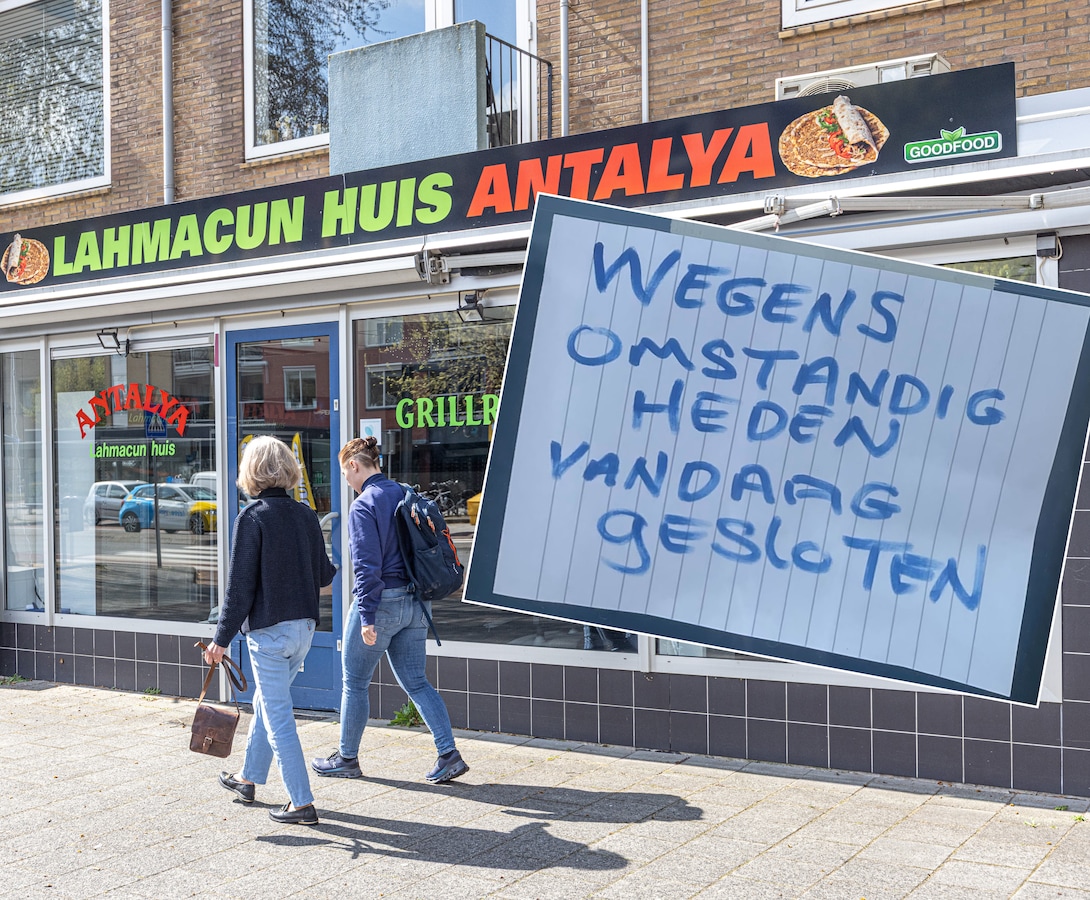 LAHMACUN HUIS ANTALYA
GOODFOOD
ANTALYA
Lahmacun huis
GRILLR
WEGENS
OMSTANDIG
HEDEN
VANDAAG
gESLOTEN